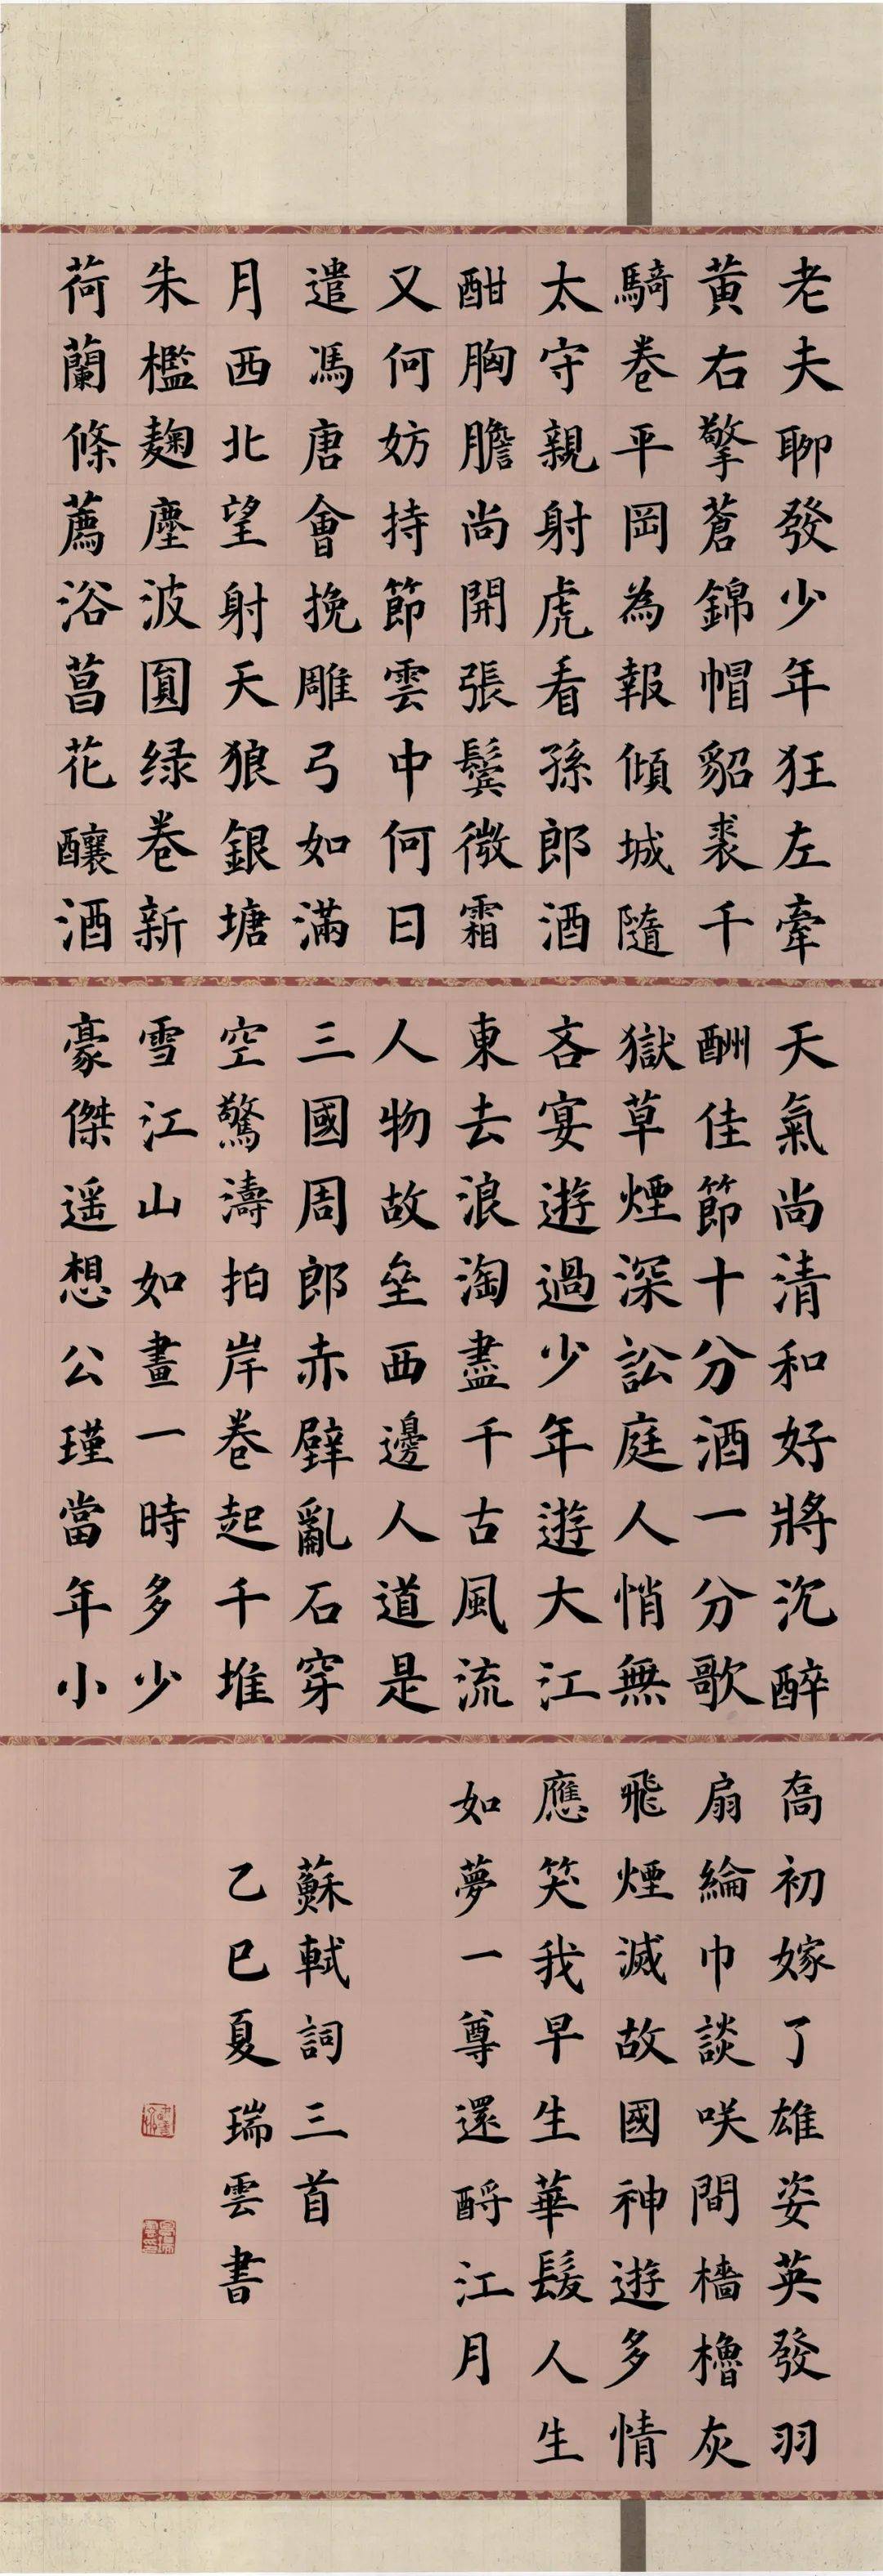 老夫聊發少年狂左牽
黃右擎蒼錦帽貂裘千
騎卷平岡為報傾城隨
太守親射虎看孫郎酒
酣胸膽尚開張鬢微霜
又何妨持節雲中何日
遣馮唐會挽雕弓如滿
月西北望射天狼銀塘
朱檻麹塵波圓绿卷新
荷蘭條薦浴菖花釀酒
天氣尚清和好將沉醉
酬佳節十分酒一分歌
獄草煙深訟庭人悄無
吝宴遊過少年遊大江
東去浪淘盡千古風流
人物故垒西邊人道是
三國周郎赤壁亂石穿
空驚濤拍岸卷起千堆
雪江山如畫一時多少
豪傑遥想公瑾當年小
喬初嫁了雄姿英發羽
扇綸巾談咲間檣櫓灰
飛煙滅故國神遊多情
應笑我早生華髮人生
如夢一尊還酹江月
蘇軾詞三首
乙巳夏瑞雲書